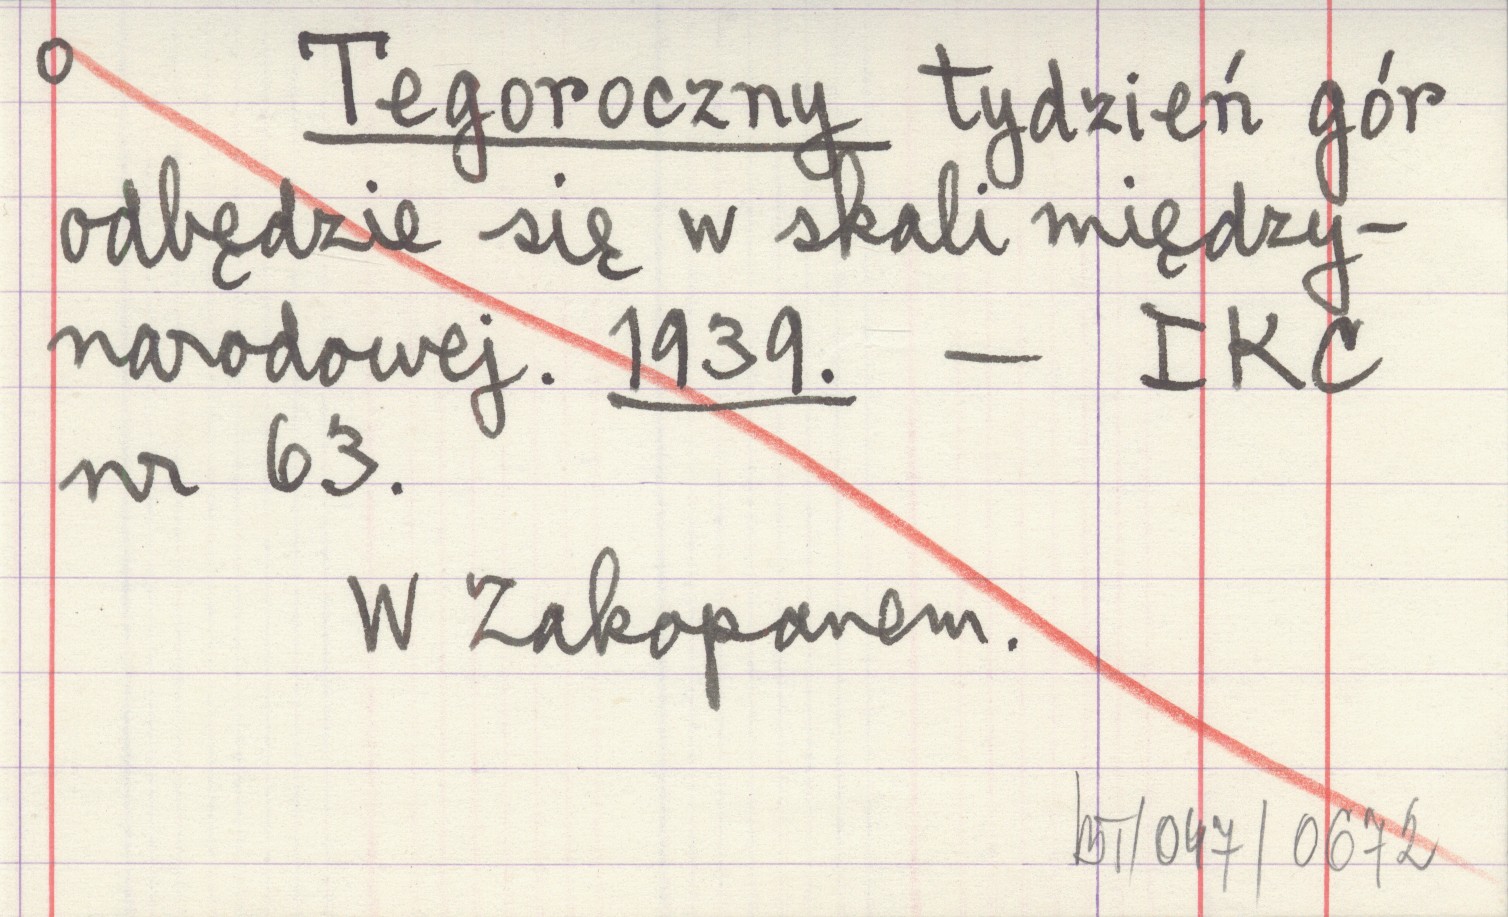 o Tegoroczny tydzień gór
odbędzie się w skali między-
narodowej. 1939. — IKC
nr 63.
W Zakopanem.
/047/0672